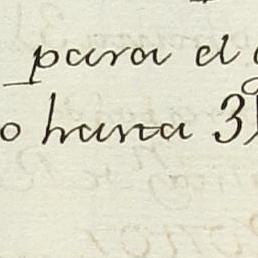 para el
o hasta 3